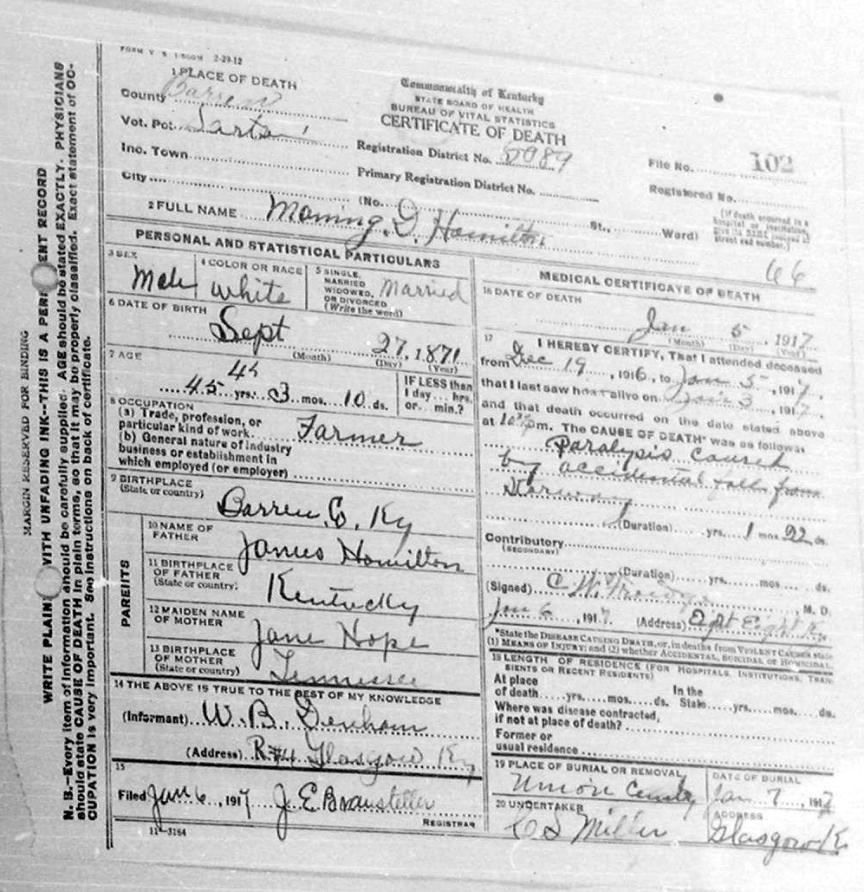 MARGIN RESERVED FOR BINDING
WRITE PLAIN WITH UNFADING INK--THIS IS A PER ENT RECORD
N. B.--Every item of information should be carefully supplied. AGE should be stated EXACTLY. PHYSICIANS
should state CAUSE OF DEATH in plain terms, so that it may be properly classified. Exact statement of OC-
CUPATION is very important. See instructions on back of certificate.
FORM V. S. 2-29-12
1 PLACE OF DEATH
County Barren
Vot. Pct.
Inc. Town
City
Commonwealth of Kentucky
STATE BOARD OF HEALTH
BUREAU OF VITAL STATISTICS
CERTIFICATE OF DEATH
Registration District No. 5089
Primary Registration District No.
(No. St., Ward)
File No. 102
Registered No.
(If death occurred in a
hospital or institution,
give its NAME instead of
street and number.)
2 FULL NAME Morning. D. Hamilton
66
PERSONAL AND STATISTICAL PARTICULARS
3 SEX Male
4 COLOR OR RACE White
5 SINGLE, MARRIED WIDOWED, OR DIVORCED (Write the word) Married
6 DATE OF BIRTH
Sept 27, 1871
(Month) (Day) (Year)
7 AGE
45
45 yrs. 3 mos. 10 ds.
IF LESS than
1 day hrs.
or min.?
8 OCCUPATION
(a) Trade, profession, or
particular kind of work Farmer
(b) General nature of industry
business or establishment in
which employed (or employer)
9 BIRTHPLACE
(State or country)
Barren Co. Ky
PARENTS
10 NAME OF
FATHER James Hamilton
11 BIRTHPLACE
OF FATHER
(State or country) Kentucky
12 MAIDEN NAME
OF MOTHER Jane Hope
13 BIRTHPLACE
OF MOTHER
(State or country) Tennessee
14 THE ABOVE IS TRUE TO THE BEST OF MY KNOWLEDGE
(Informant) W. B. Denham
(Address) R#4 Glasgow Ky
15
Filed Jan 6, 1917 J. E. Bransteller
REGISTRAR
11-3184
MEDICAL CERTIFICATE OF DEATH
16 DATE OF DEATH
Jan 5, 1917
(Month) (Day) (Year)
17 I HEREBY CERTIFY, That I attended deceased
from Dec 19, 1916, to Jan 5, 1917,
that I last saw h alive on Jan 3, 1917,
and that death occurred on the date stated above
at 10 pm. The CAUSE OF DEATH* was as follows:
Paralysis caused
by accidental fall from
Stairway
(Duration) yrs. 1 mos. 22 ds.
Contributory
(SECONDARY)
(Duration) yrs. mos. ds.
(Signed) C. W. M. D.
Jan 6, 1917 (Address) Eight Eight Ky.
*State the DISEASE CAUSING DEATH, or, in deaths from VIOLENT CAUSES state
(1) MEANS OF INJURY; and (2) whether ACCIDENTAL, SUICIDAL or HOMICIDAL.
18 LENGTH OF RESIDENCE (FOR HOSPITALS, INSTITUTIONS, TRAN-
SIENTS OR RECENT RESIDENTS)
At place In the
of death yrs. mos. ds. State yrs. mos. ds.
Where was disease contracted,
if not at place of death?
Former or
usual residence
19 PLACE OF BURIAL OR REMOVAL DATE OF BURIAL
Union Jan 7, 1917
20 UNDERTAKER ADDRESS
C S Miller Glasgow K.